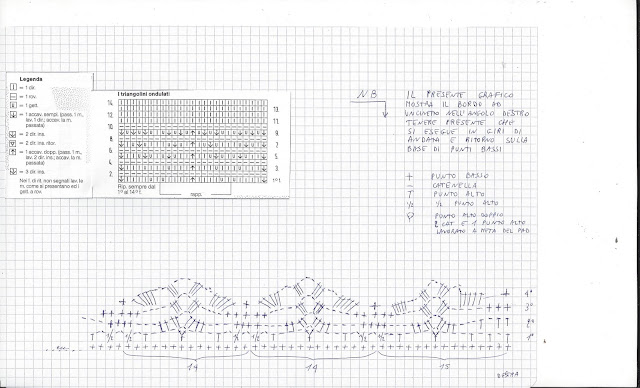 Legenda
= 1 dir.
= 1 rov.
= 1 gett.
= 1 accav. sempl. (pass. 1 m.,
lav. 1 dir., accav. la m.
passata)
= 2 dir. ins.
= 2 dir. ins. ritor.
= 1 accav. dopp. (pass. 1 m.,
lav. 2 dir. ins., accav. la m.
passata)
= 3 dir. ins.
Nei f. di rit. non segnati lav. le
m. come si presentano ed i
gett. a rov.
I triangolini ondulati
14.
13.
12.
11.
10.
9.
8.
7.
6.
5.
4.
3.
2.
1° f.
Rip. sempre dal
1° al 14° f.
rapp.
NB
IL PRESENTE GRAFICO
MOSTRA IL BORDO AD
UNCINETTO NELL'ANGOLO DESTRO
TENERE PRESENTE CHE
SI ESEGUE IN GIRI DI
ANDATA E RITORNO SULLA
BASE DI PUNTI BASSI
+ PUNTO BASSO
CATENELLA
T PUNTO ALTO
½ ½ PUNTO ALTO
PUNTO ALTO DOPPIO
2 CAT E 1 PUNTO ALTO
LAVORATO A METÀ DEL PAD
4°
3°
2°
1°
14
14
15